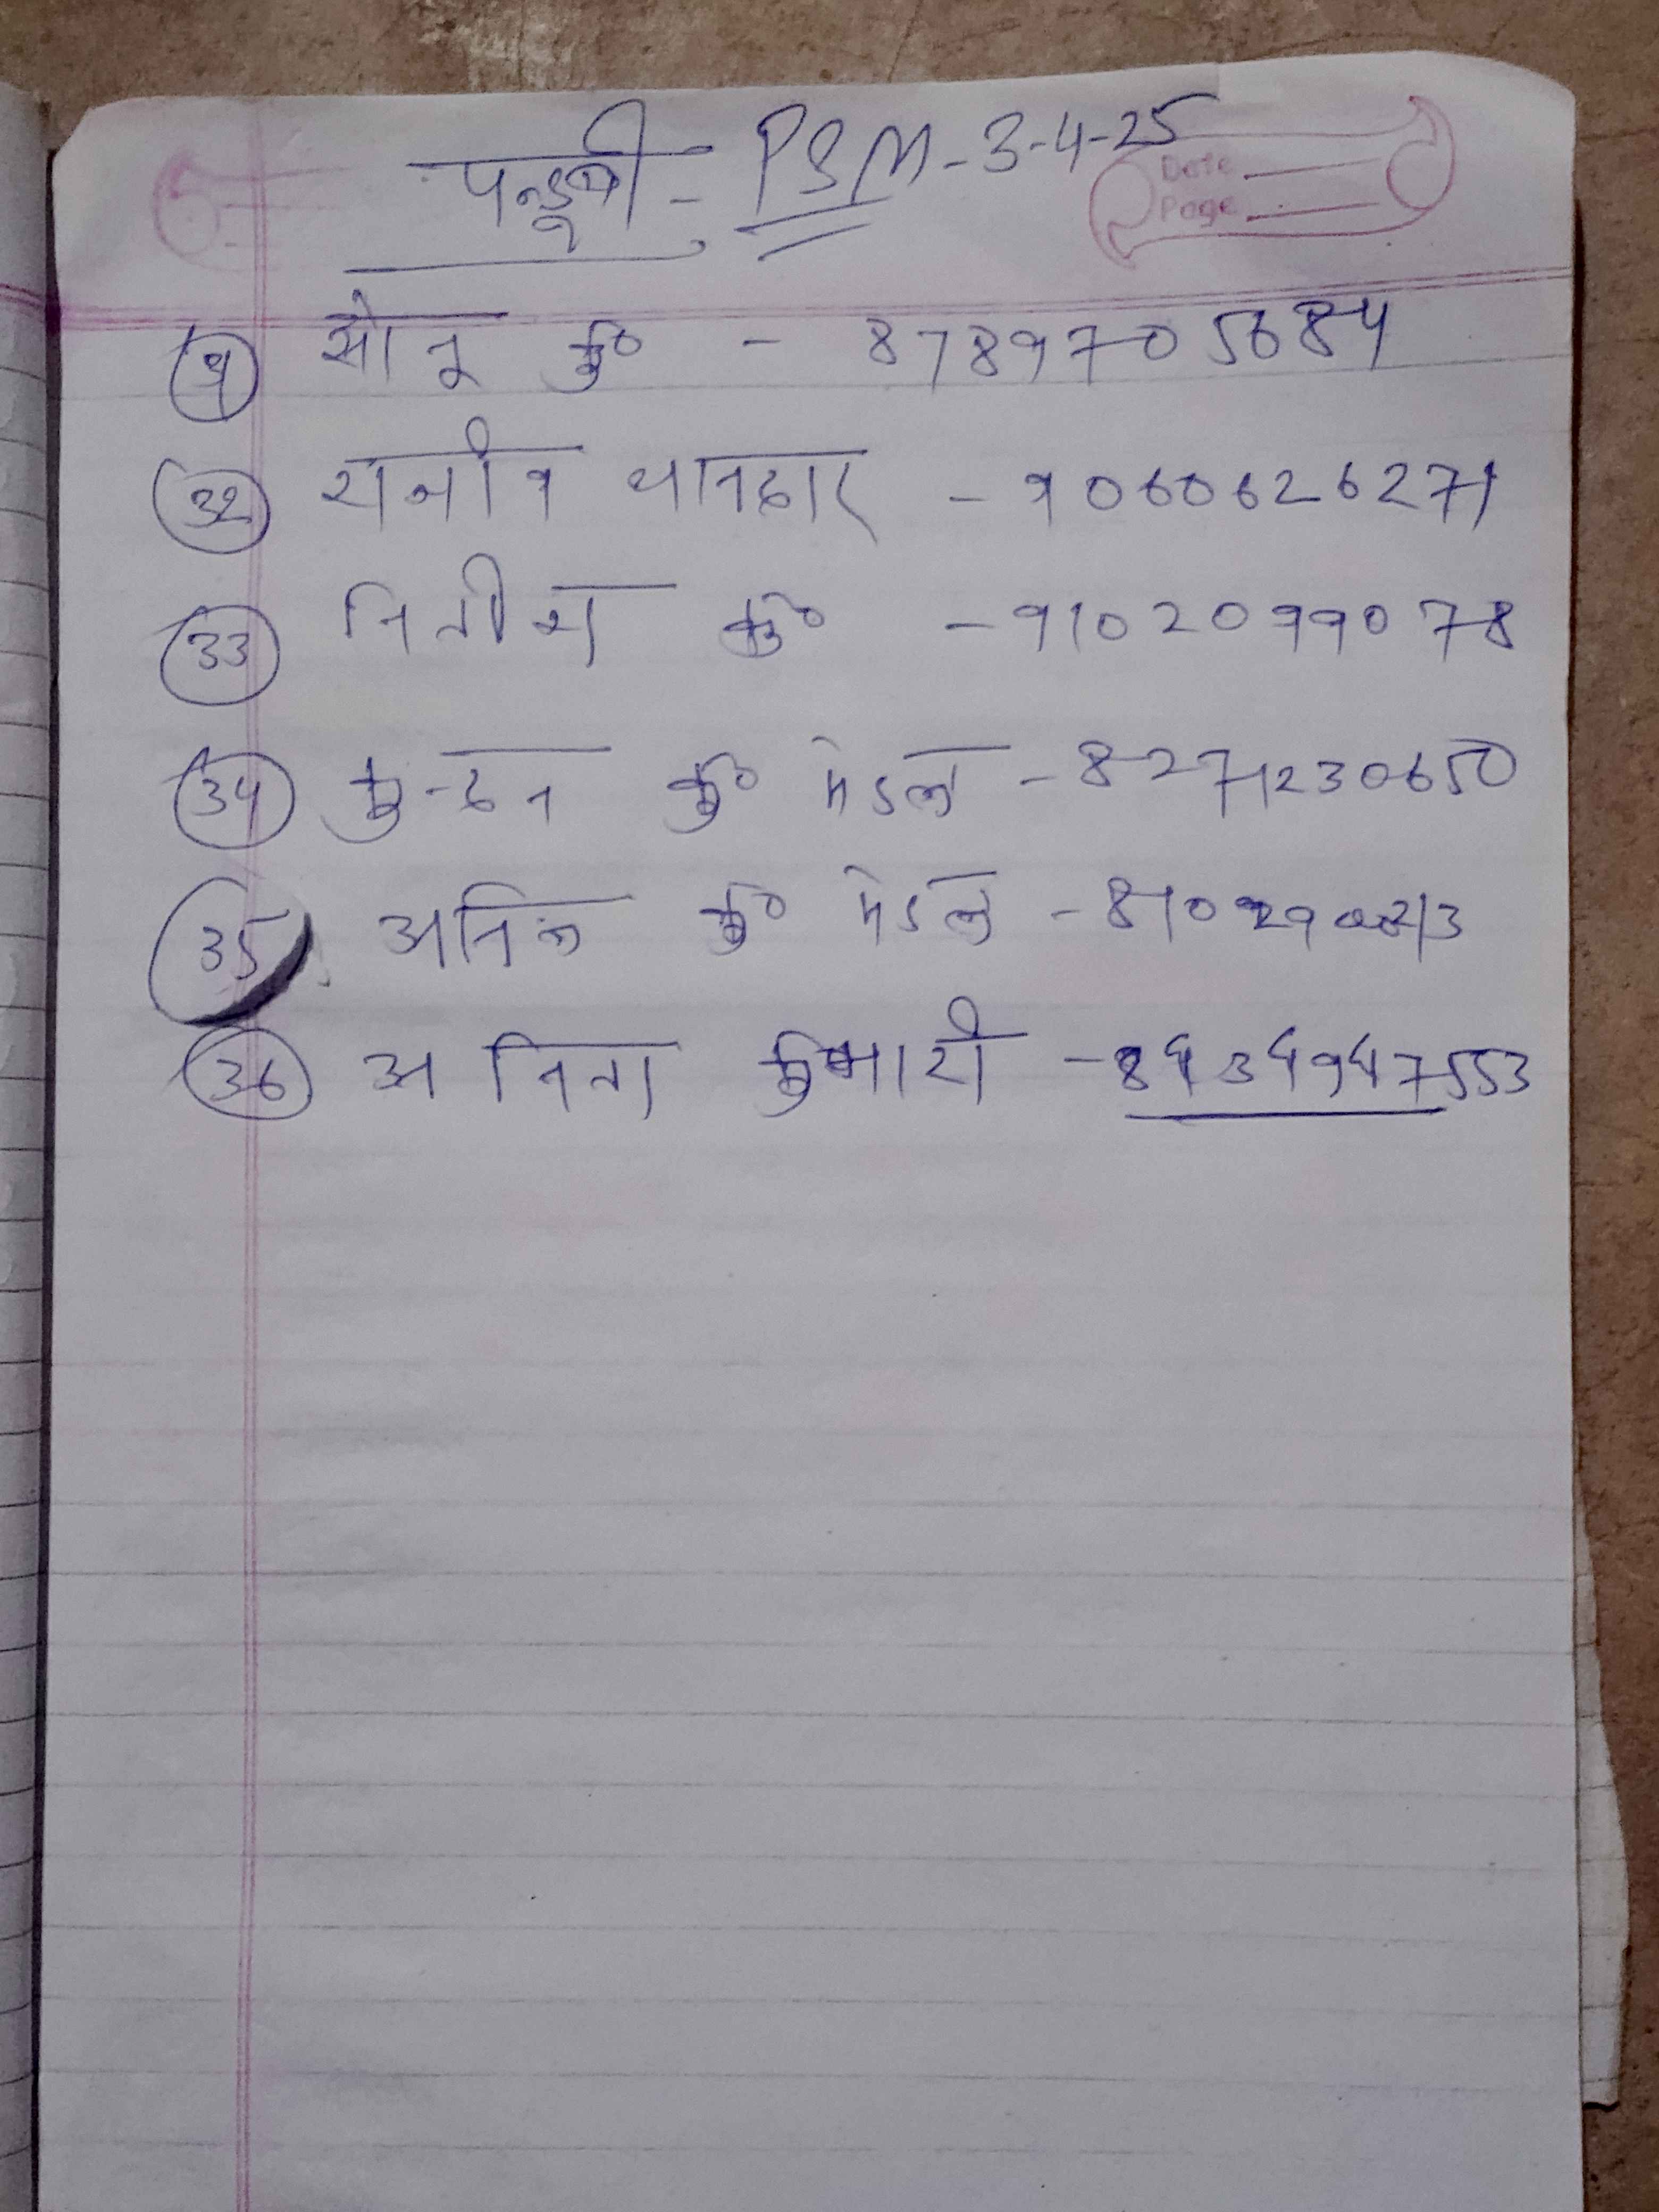 पन्डूबी - PSM - 3-4-25
Date
Page
सोनू कु० - 8789705684
32 राजीव थानदार - 9060626271
33 नितीश कु० - 9102099078
34 कुन्दन कु० मंडल - 8271230650
35 अनिल कु० मंडल
36 अनिता कुमारी - 8434947553